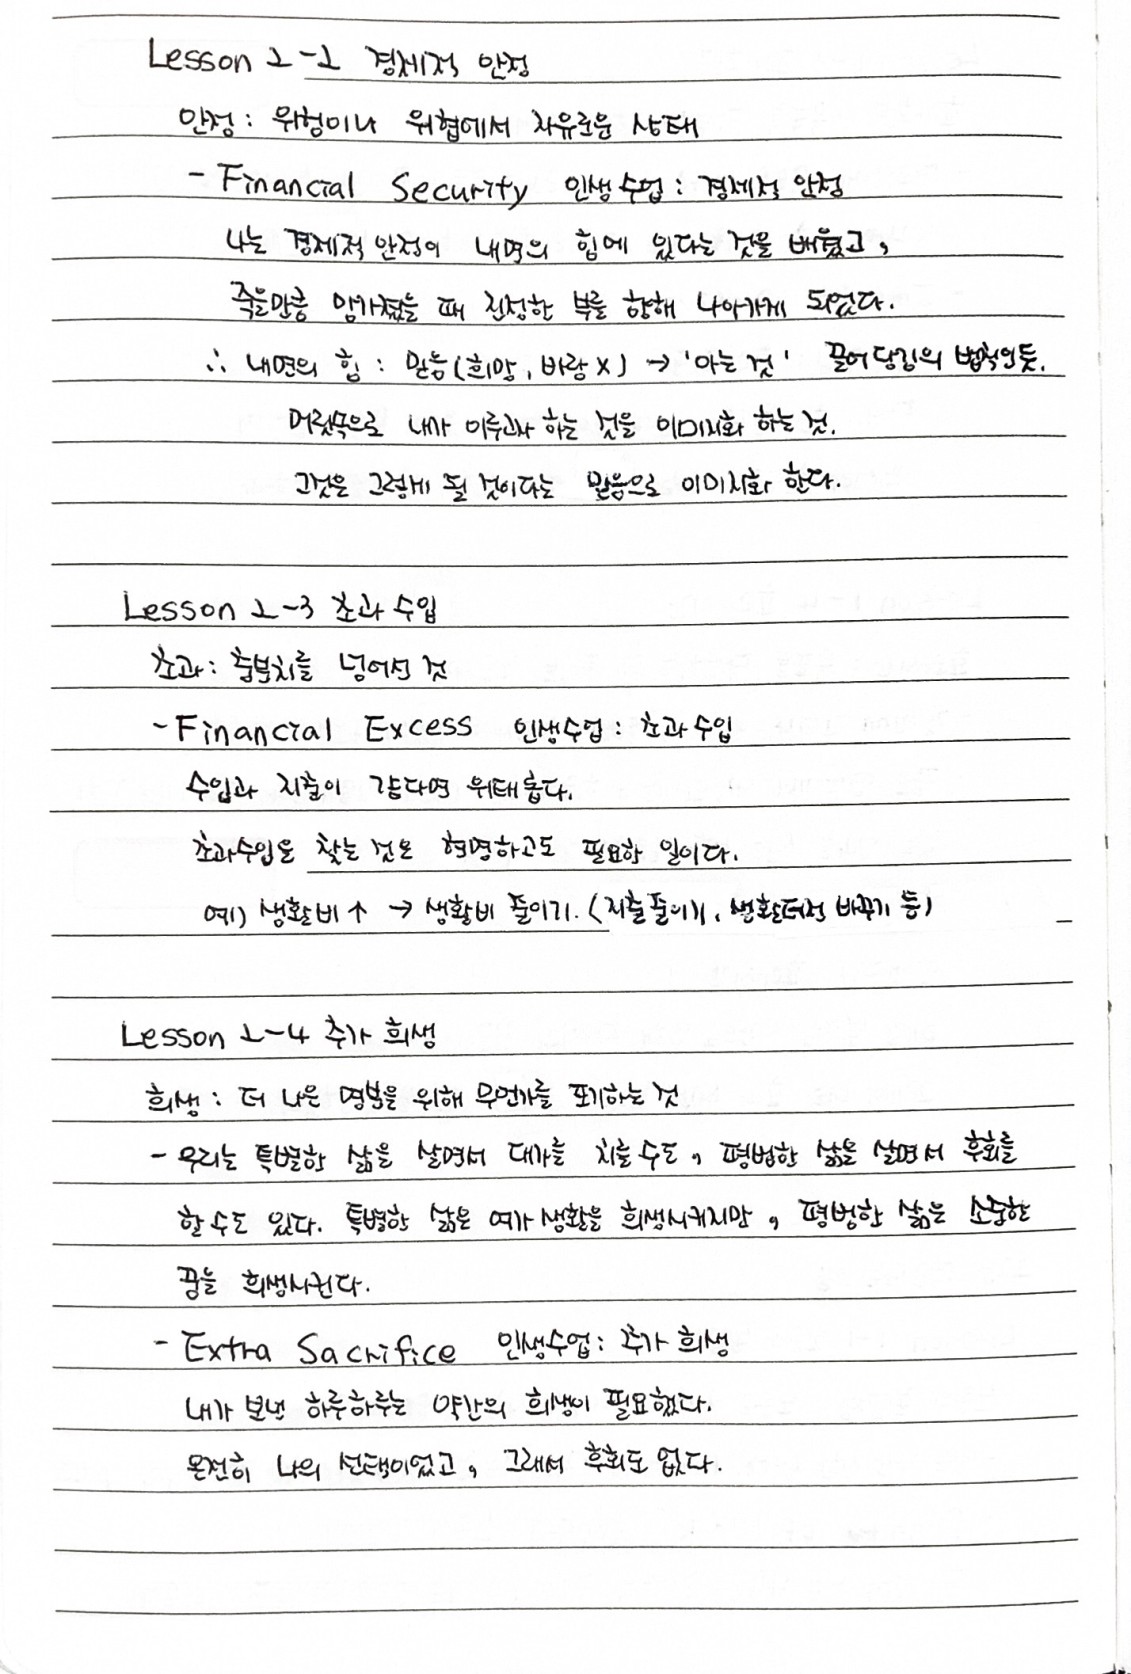 Lesson 1-1 경제적 안정
안정: 위험이나 위협에서 자유로운 상태
- Financial Security 인생수업: 경제적 안정
나는 경제적 안정이 내면의 힘에 있다는 것을 배웠고,
죽을만큼 맘가졌을 때 진정한 부를 향해 나아가게 되었다.
∴ 내면의 힘: 믿음(희망, 바람 X) → '아는 것' 끌어당김의 법칙인듯.
머릿속으로 내가 이루고자 하는 것을 이미지화 하는 것.
그것은 그렇게 될 것이다는 믿음으로 이미지화 한다.
Lesson 1-3 초과 수입
초과: 충분치를 넘어선 것
- Financial Excess 인생수업: 초과 수입
수입과 지출이 같다면 위태롭다.
초과수입을 찾는 것은 현명하고도 필요한 일이다.
예) 생활비↑ → 생활비 줄이기. (지출 줄이기, 생활터전 바꾸기 등)
Lesson 1-4 추가 희생
희생: 더 나은 명분을 위해 무언가를 포기하는 것
- 우리는 특별한 삶을 살면서 대가를 치를 수도, 평범한 삶을 살면서 후회를
할 수도 있다. 특별한 삶은 여가 생활을 희생시키지만, 평범한 삶은 소중한
꿈을 희생시킨다.
- Extra Sacrifice 인생수업: 추가 희생
내가 보낸 하루하루는 약간의 희생이 필요했다.
온전히 나의 선택이었고, 그래서 후회도 없다.